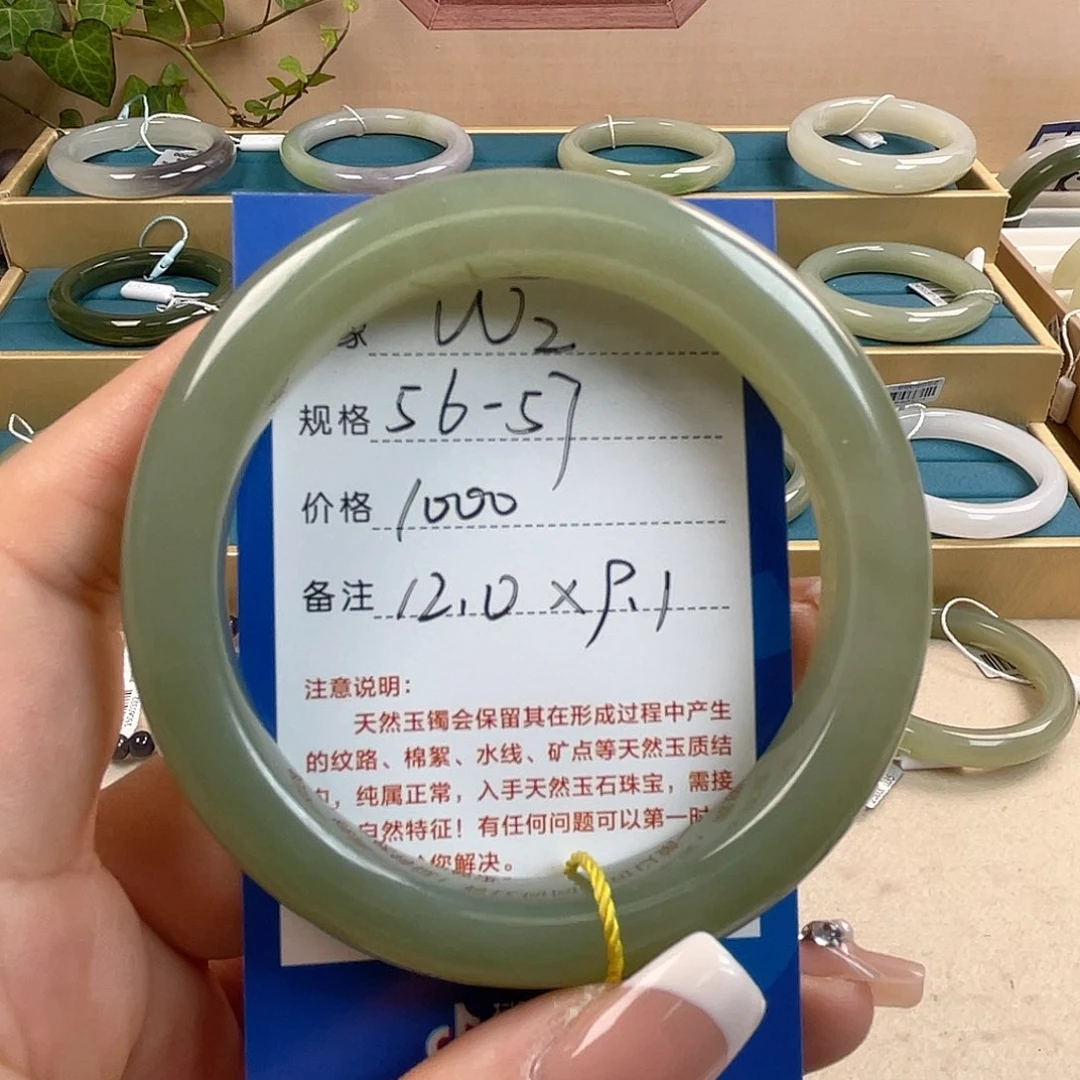 家 W2
规格 56-57
价格 1000
备注 12.0×9.1
注意说明：
天然玉镯会保留其在形成过程中产生
的纹路、棉絮、水线、矿点等天然玉质结
，纯属正常，入手天然玉石珠宝，需接
自然特征！有任何问题可以第一时
您解决。